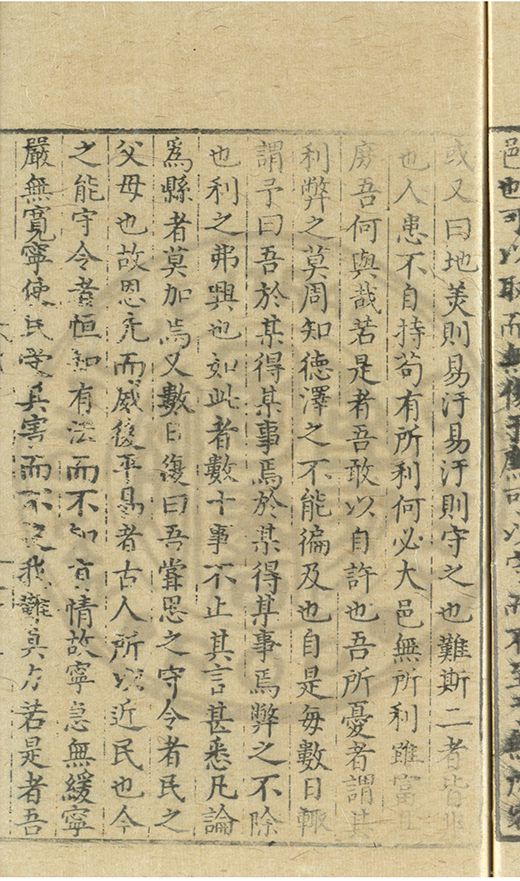 邑也可以取而無傷可以守而不至無
或又曰地美則易汙易汙則守之也難斯二者皆非
也人患不自持苟有所利何必大邑無所利雖富且
庶吾何與哉若是者吾敢以自許也吾所憂者謂其
利弊之莫周知德澤之不能徧及也自是每數日輙
謂予曰吾於某得某事焉於某得某事焉弊之不除
也利之弗興也如此者數十事不止其言甚悉凡論
為縣者莫加焉又數日復曰吾嘗思之守令者民之
父母也故恩先而威後平易者古人所以近民也今
之能守令者恒知有法而不知有情故寧急無緩寧
嚴無寬寧使民受其害而不我若是者吾